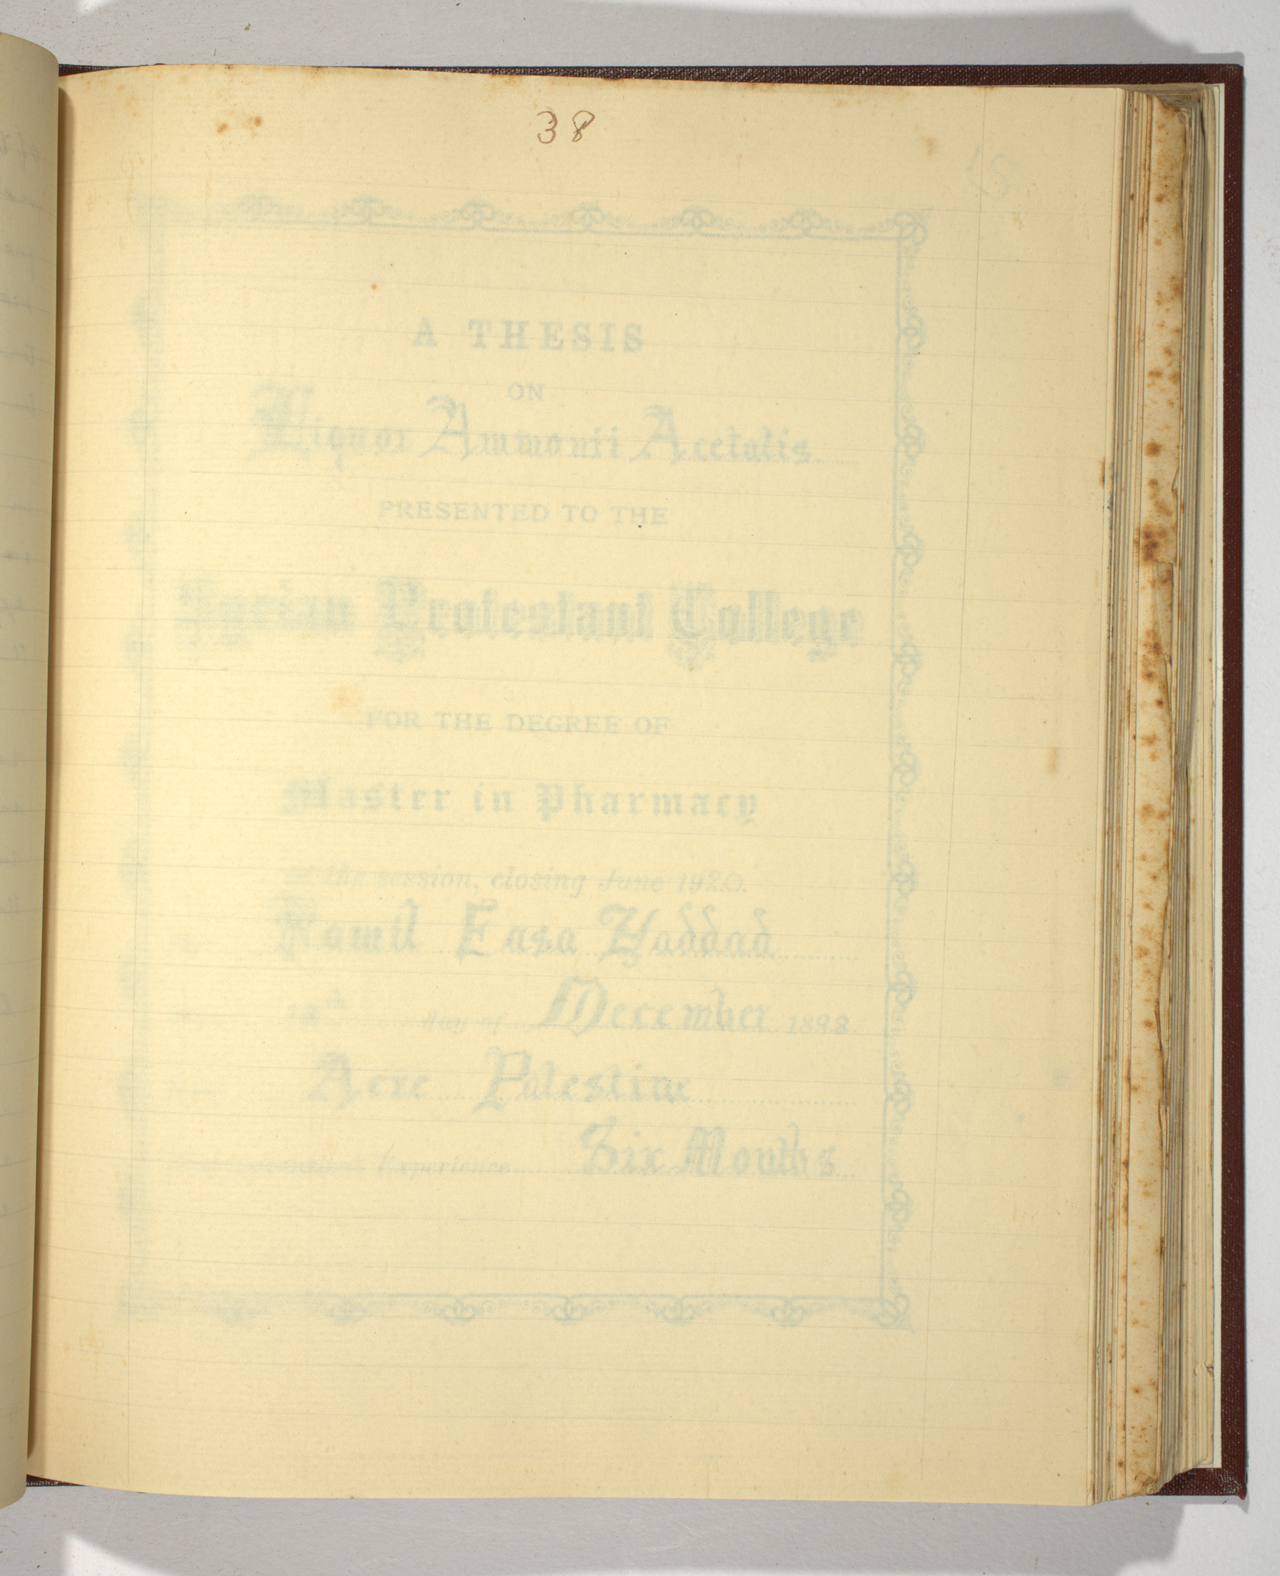 38
A THESIS
ON
Liquor Ammonii Acetatis
PRESENTED TO THE
Syrian Protestant College
FOR THE DEGREE OF
Master in Pharmacy
the session, closing June 1920.
Kamil Easa Haddad
12th day of December 1898
Acre Palestine
Experience Six Months